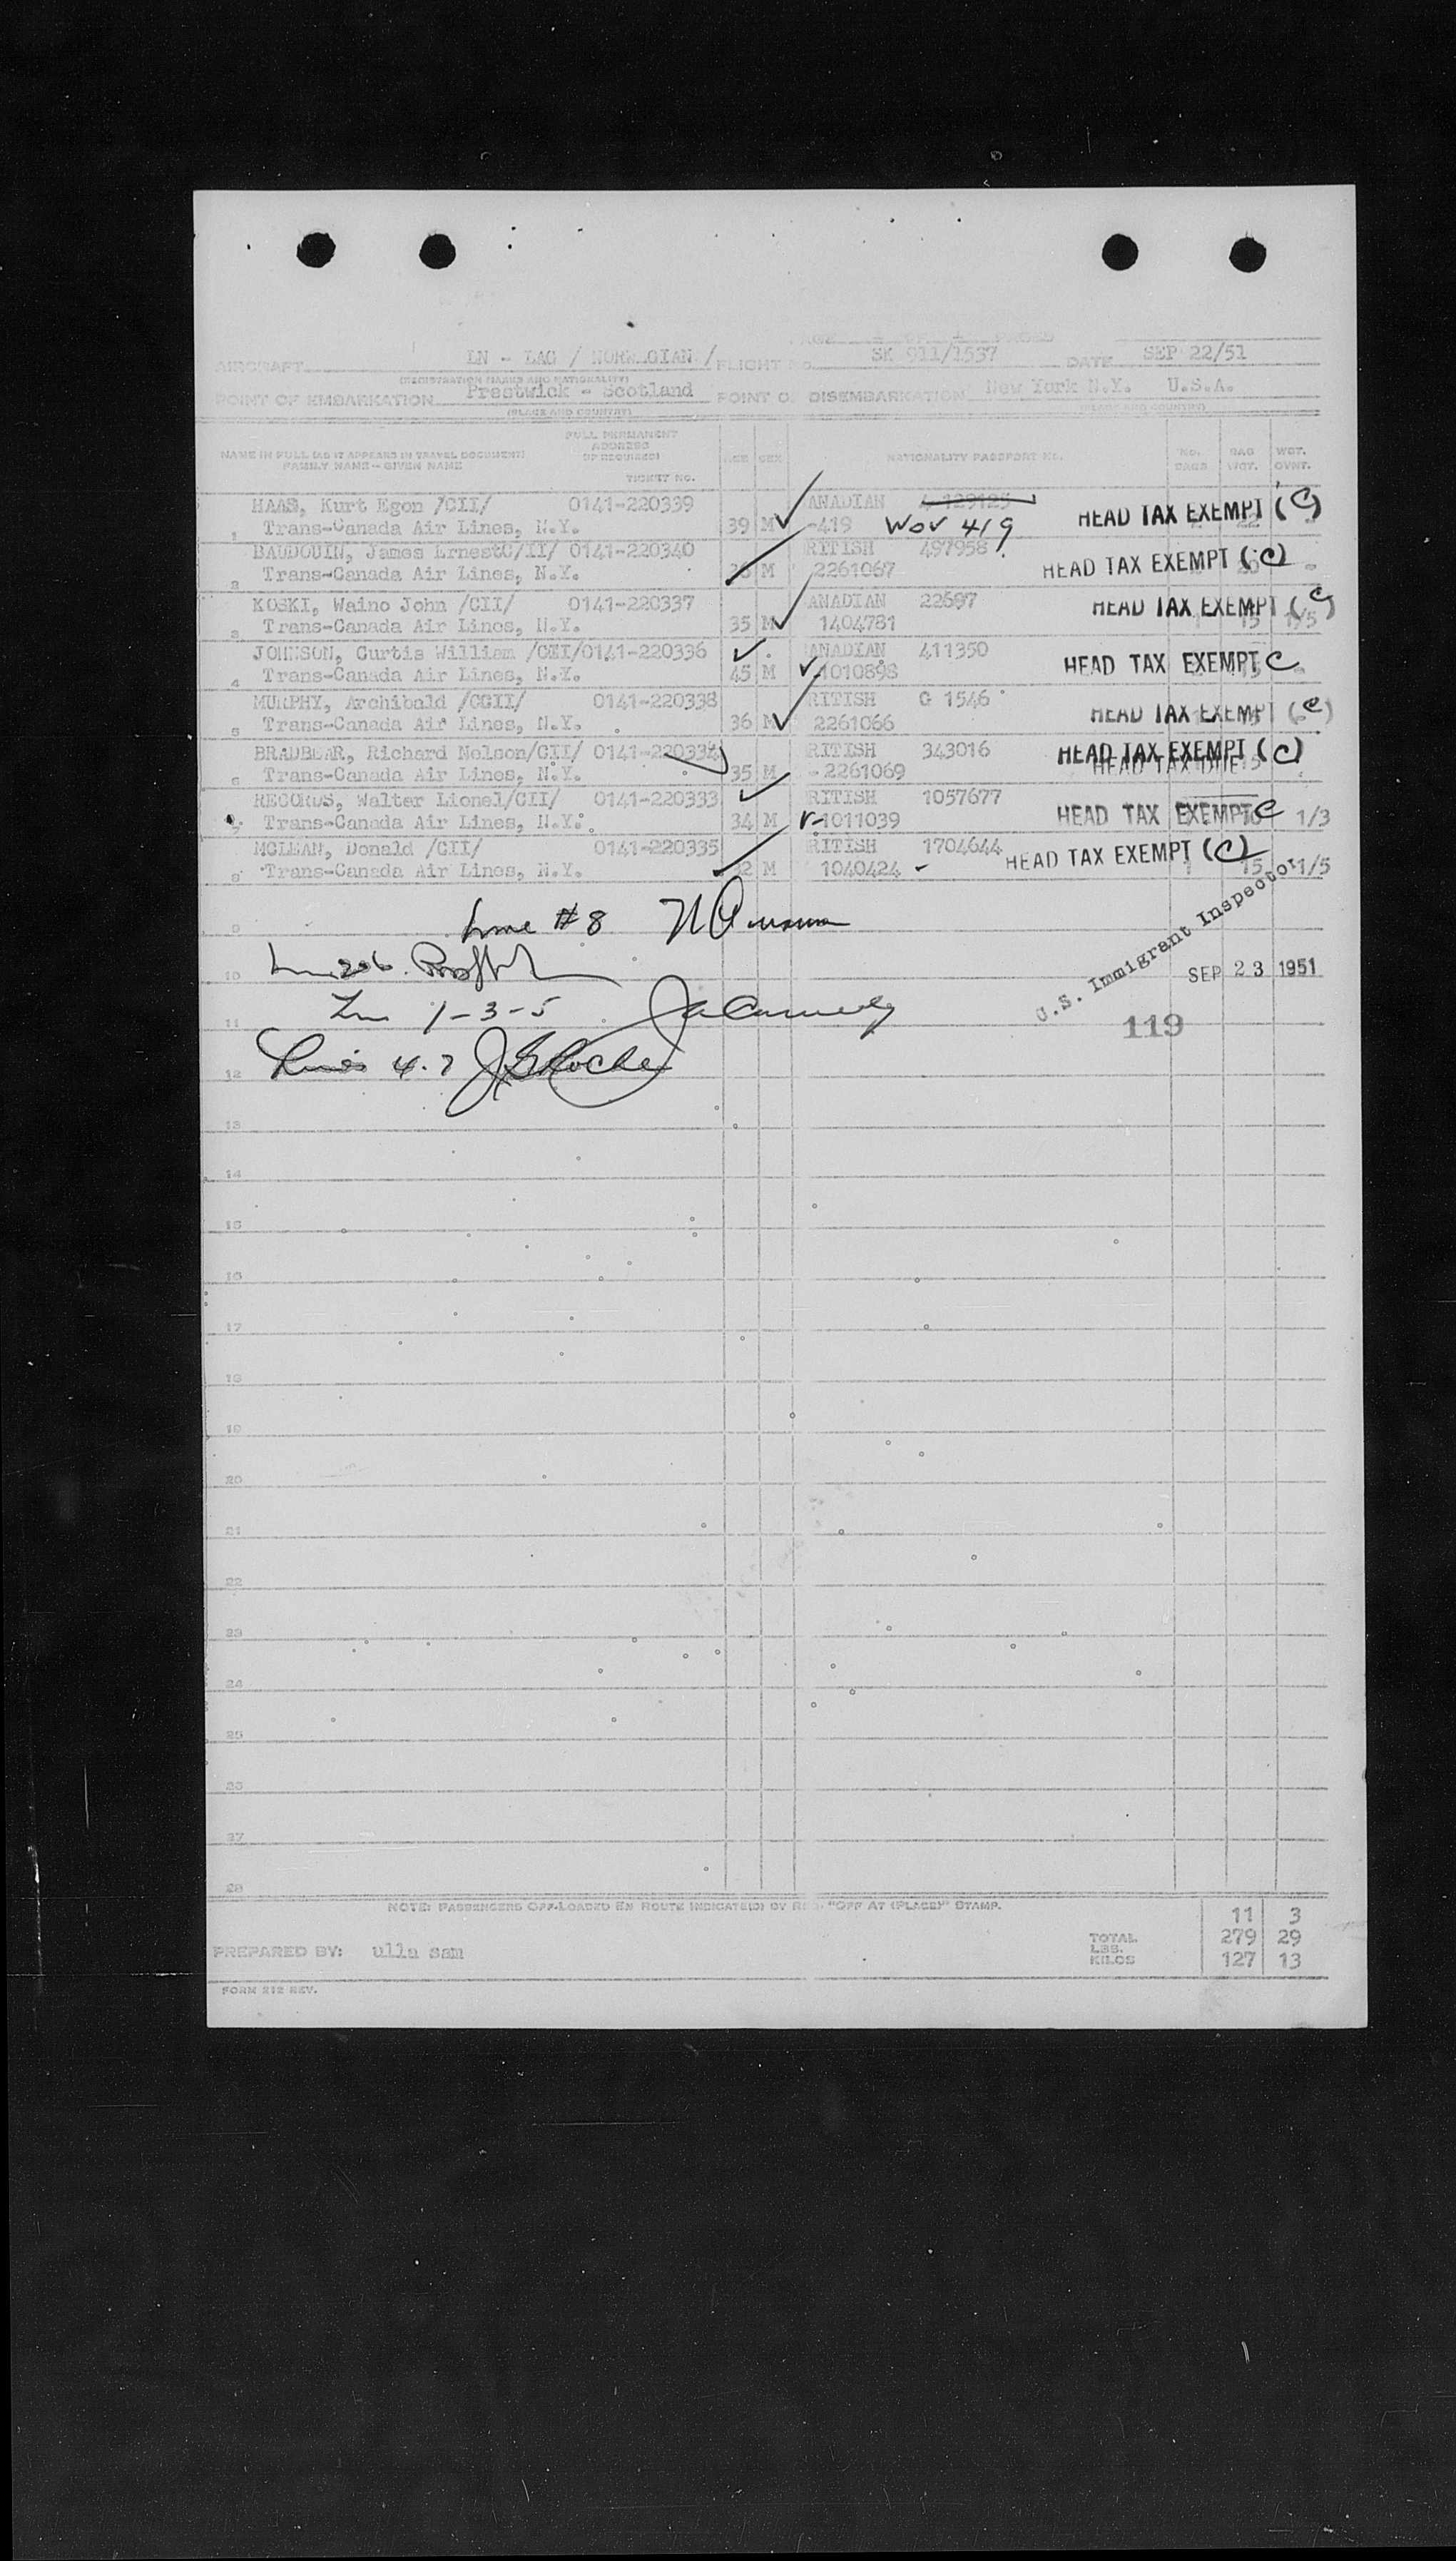 AIRCRAFT LN - LAG / NORWEGIAN / FLIGHT No. SK 911/1537 DATE SEP 22/51
(REGISTRATION MARKS AND NATIONALITY)
POINT OF EMBARKATION Prestwick - Scotland POINT O. DISEMBARKATION New York N.Y. U.S.A.
(PLACE AND COUNTRY) (PLACE AND COUNTRY)
NAME IN FULL (AS IT APPEARS IN TRAVEL DOCUMENT) FAMILY NAME - GIVEN NAME FULL PERMANENT ADDRESS (IF REQUIRED) TICKET NO. AGE SEX NATIONALITY PASSPORT NO. NO. BAGS BAG WGT. WGT. OVWT.
HAAS, Kurt Egon /CII/ 0141-220339 ANADIAN 4 129125 HEAD TAX EXEMPT (C)
1 Trans-Canada Air Lines, N.Y. 39 M -419 WOV 419
BAUDOUIN, James ErnestC/II/ 0141-220340 RITISH 497958 HEAD TAX EXEMPT (C)
2 Trans-Canada Air Lines, N.Y. 36 M 2261067
KOSKI, Waino John /CII/ 0141-220337 ANADIAN 22697 HEAD TAX EXEMPT (C)
3 Trans-Canada Air Lines, N.Y. 35 M 1404781 15 1/5
JOHNSON, Curtis William /CII/0141-220336 ANADIAN 411350 HEAD TAX EXEMPT C
4 Trans-Canada Air Lines, N.Y. 45 M 1010898
MURPHY, Archibald /CGII/ 0141-220338 RITISH G 1546 HEAD TAX EXEMPT (C)
5 Trans-Canada Air Lines, N.Y. 36 M 2261066
BRADBEAR, Richard Nelson/CII/ 0141-220334 RITISH 343016 HEAD TAX EXEMPT (C)
6 Trans-Canada Air Lines, N.Y. 35 M - 2261069 HEAD TAX DUE
RECORDS, Walter Lionel/CII/ 0141-220333 RITISH 1057677 HEAD TAX EXEMPT C 1/3
7 Trans-Canada Air Lines, N.Y. 34 M -1011039
MCLEAN, Donald /CII/ 0141-220335 RITISH 1704644 HEAD TAX EXEMPT (C)
8 Trans-Canada Air Lines, N.Y. 32 M 1040424 1 15 1/5
Line #8
9
10
U.S. Immigrant Inspector
SEP 23 1951
1-3-5
11
119
Lines 4.7 J.G. Roche
12
13
14
15
16
17
18
19
20
21
22
23
24
25
26
27
28
NOTE: PASSENGERS OFF-LOADED EN ROUTE INDICATE(D) BY "OFF AT (PLACE)" STAMP.
11 3
TOTAL LBS. 279 29
KILOS 127 13
PREPARED BY: ulla sam
FORM 212 REV.